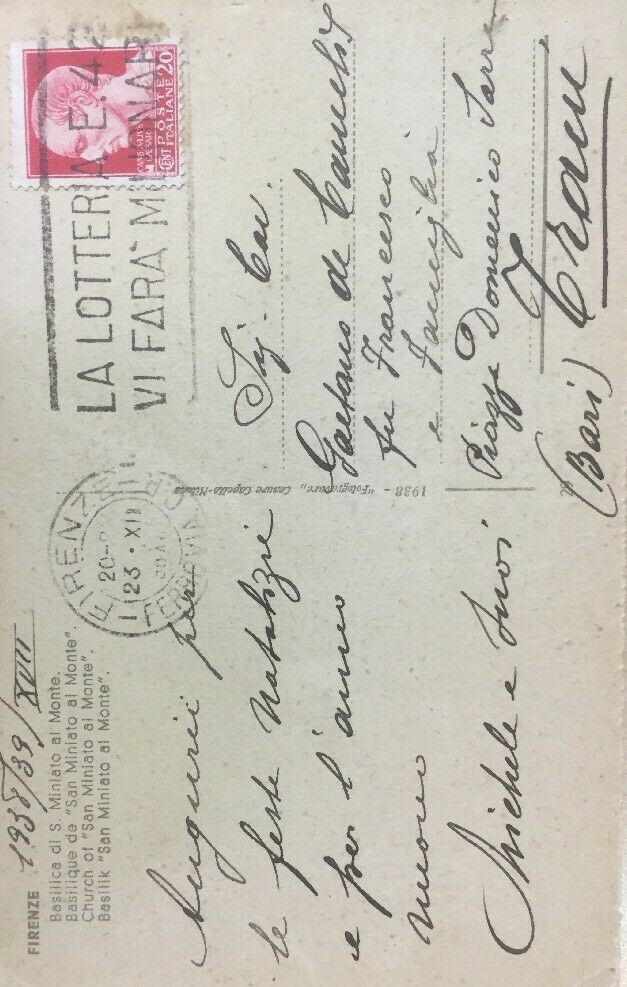 FIRENZE
1938/39/XVIII
Basilica di S. Miniato al Monte.
Basilique de "San Miniato al Monte".
Church of "San Miniato al Monte".
Basilik "San Miniato al Monte".
Auguri per
le feste Natalizie
e per l'anno
nuovo
Michele e suoi
FIRENZE
23 · XII
FERROVIA
LA LOTTERIA E. 42
VI FARA' MILIONARI
POSTE
ITALIANE
CENT 20
1938 - "Fotogravure" Cesare Capello-Milano
Sig. Cav.
Gaetano de
fu Francesco
e Famiglia
Piazza Domenico Sarro
Trani
(Bari)